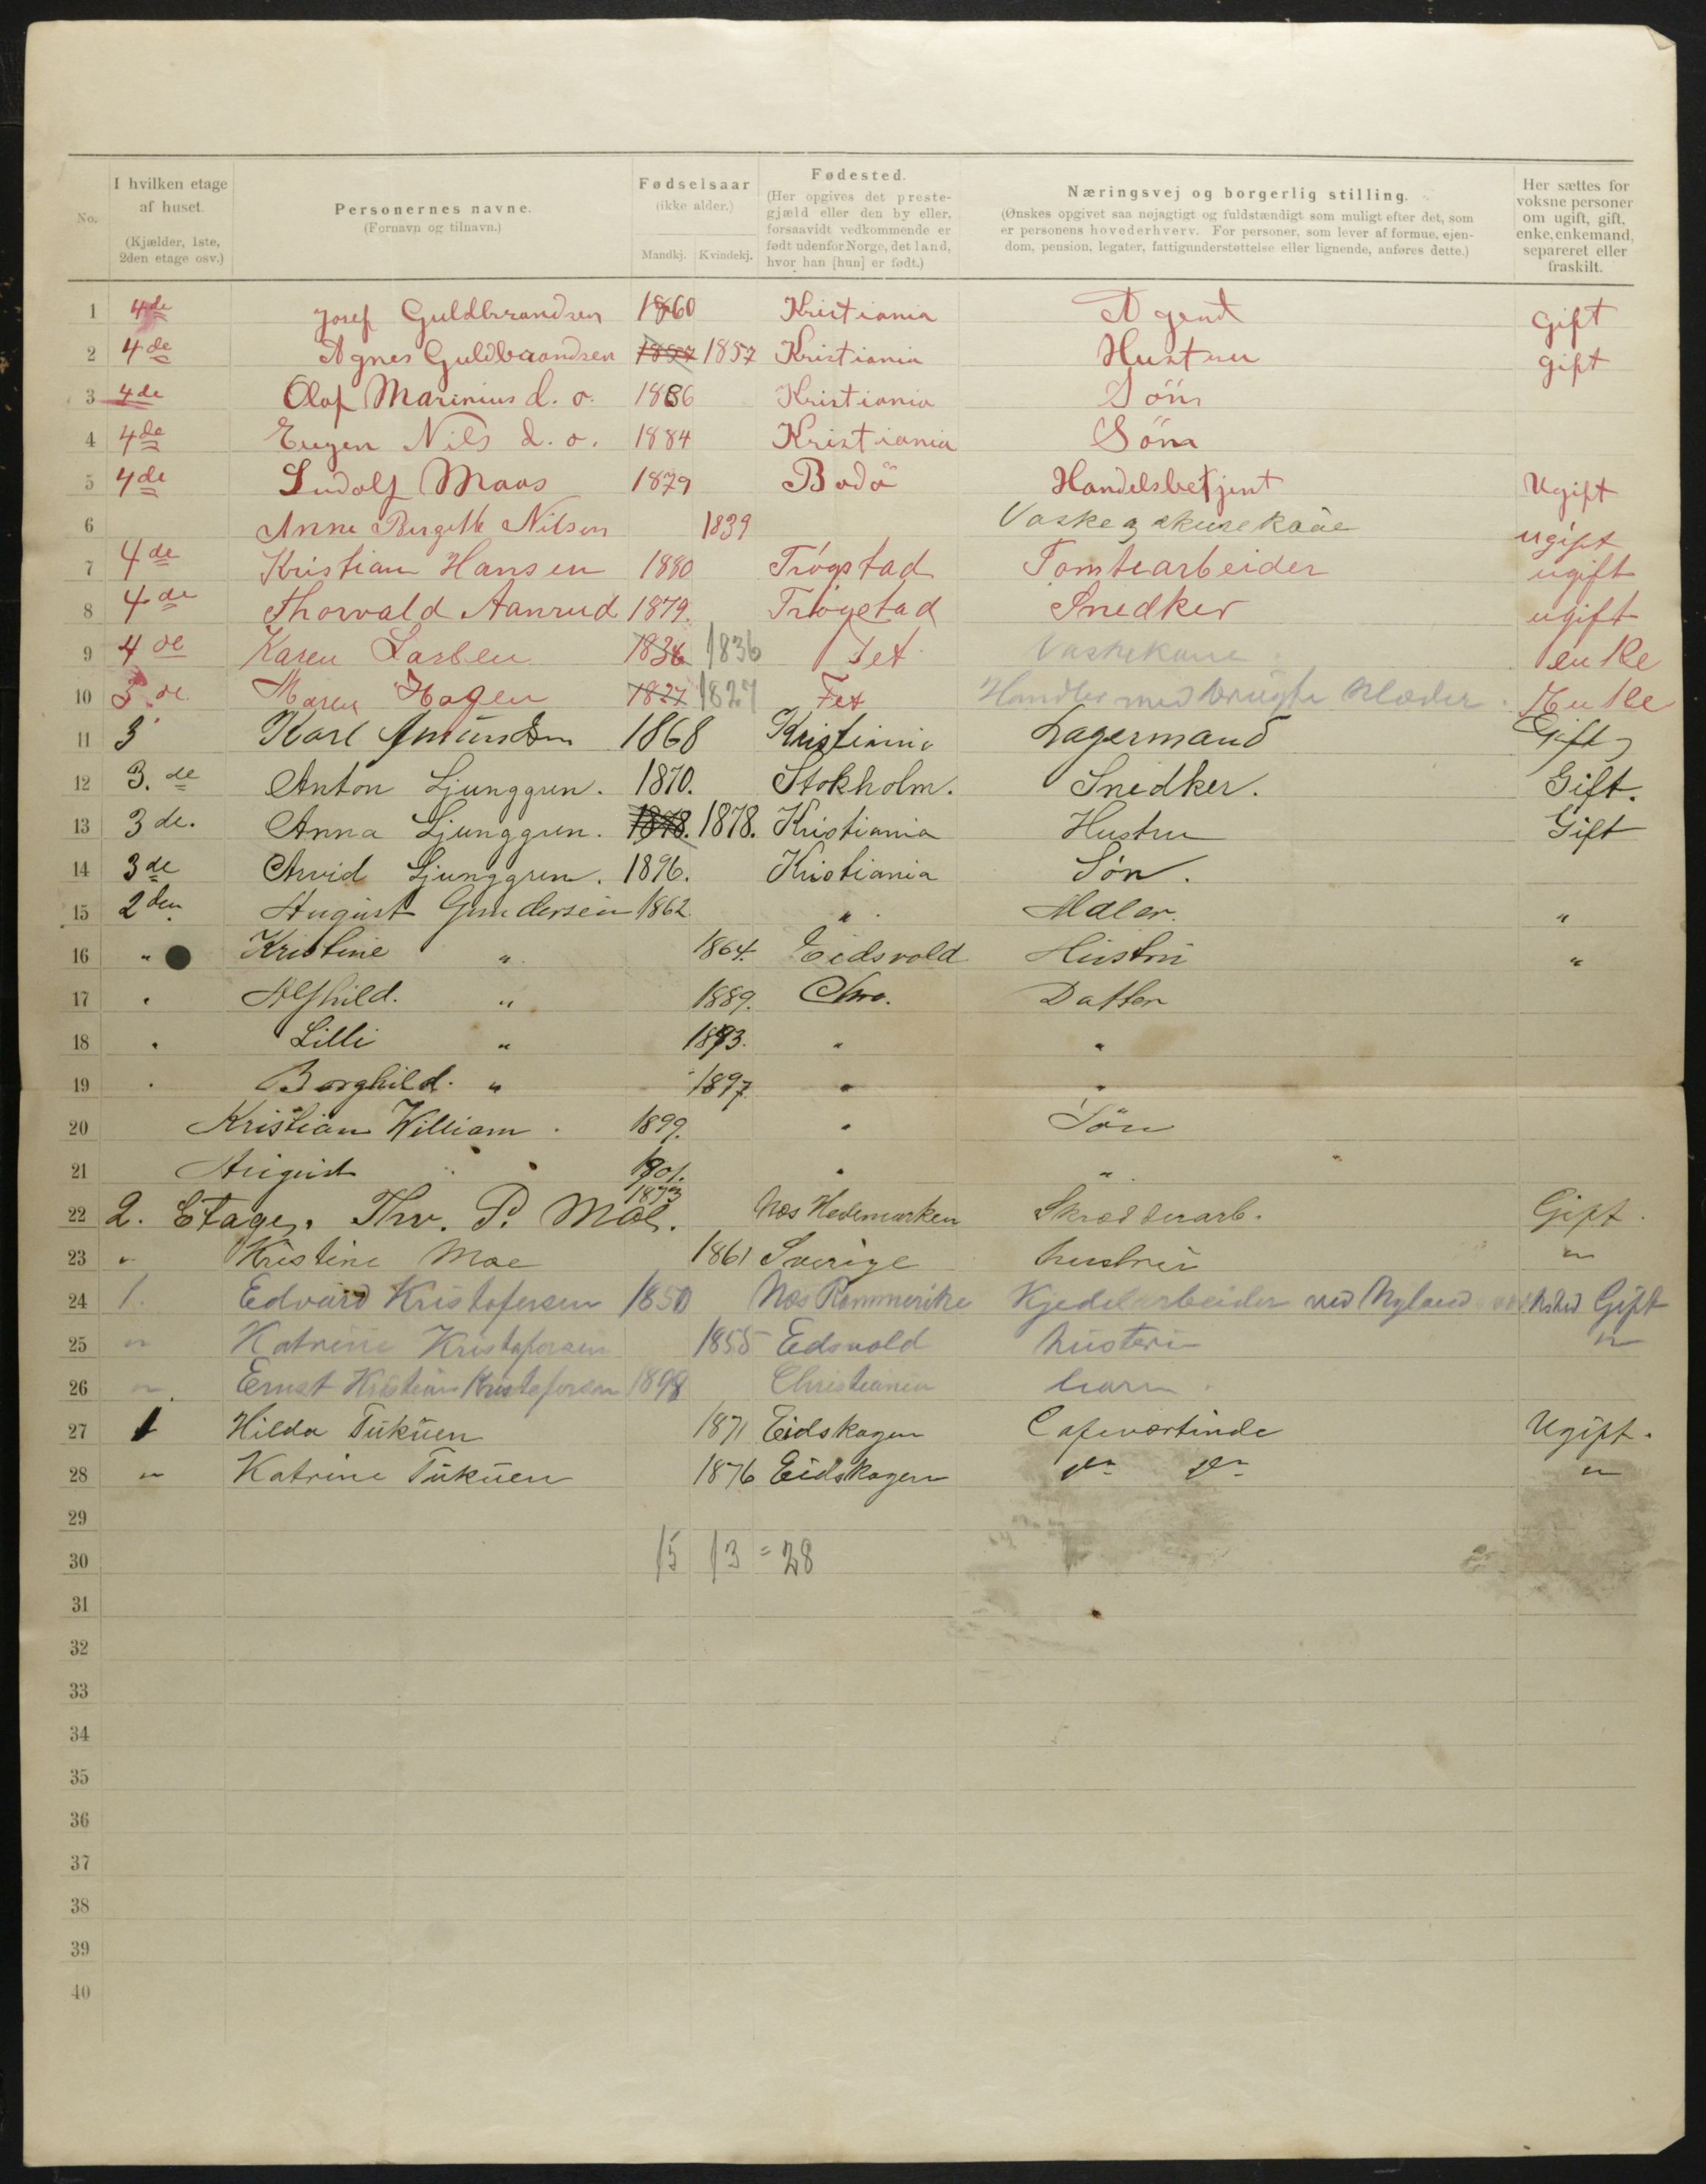 No.
I hvilken etage af huset. (Kjælder, 1ste, 2den etage osv.)
Personernes navne. (Fornavn og tilnavn.)
Fødselsaar (ikke alder.) Mandkj. Kvindekj.
Fødested. (Her opgives det prestegjæld eller den by eller, forsaavidt vedkommende er født udenfor Norge, det land, hvor han [hun] er født.)
Næringsvej og borgerlig stilling. (Ønskes opgivet saa nøjagtigt og fuldstændigt som muligt efter det, som er personens hovederhverv. For personer, som lever af formue, ejendom, pension, legater, fattigunderstøttelse eller lignende, anføres dette.)
Her sættes for voksne personer om ugift, gift, enke, enkemand, separeret eller fraskilt.
1 4de Josef Guldbrandsen 1860 Kristiania Agent gift
2 4de Agnes Guldbrandsen 1857 1857 Kristiania Hustru gift
3 4de Olaf Marinius d. o. 1886 Kristiania Sön
4 4de Eugen Nils d. o. 1884 Kristiania Sön
5 4de Ludolf Maas 1879 Bodö Handelsbetjent Ugift
6 Anne Birgitte Nilsen 1839 Vaske ugift
7 4de Kristian Hansen 1880 Trögstad Tomtearbeider ugift
8 4de Thorvald Aanrud 1879. Trögstad Snedker ugift
9 4de Karen Larsen 1836 1836 Fet Vaskekone enke
10 3de Maren Hagen 1827 1827 Fet Handler med brugte Klæder. Enke
11 3 Karl Amundsen 1868 Kristiania Lagermand Gift
12 3.de Anton Ljunggren. 1870. Stokholm. Snedker. Gift.
13 3de. Anna Ljunggren. 1878. 1878. Kristiania Hustru Gift
14 3de Arvid Ljunggren. 1896. Kristiania Søn.
15 2den August Gundersen 1862 " Maler. "
16 " Kristine " 1864. Eidsvold Hustru "
17 " Alfhild. " 1889. Chra. Datter
18 " Lilli " 1893. " "
19 " Borghild. " 1897 " "
20 Kristian William 1899. " Sön
21 August " " 1901. " "
22 2. Etage. Thv. P. Moe. 1873 Næs Hedemarken Skrædderarb. Gift.
23 " Kristine Moe 1861 Sverige hustru "
24 1. Edvard Kristofersen 1850 Næs Rommerike Kjedelarbeider ved Nylands værksted Gift
25 " Katrine Kristofersen 1855 Edsvold hustru "
26 " Ernst Kristian Kristofersen 1898 Christiania barn
27 1 Hilda Tukuen 1871 Eidskogen Cafeværtinde Ugift.
28 " Katrine Tukuen 1876 Eidskogen "
29
30 15 13 = 28
31
32
33
34
35
36
37
38
39
40